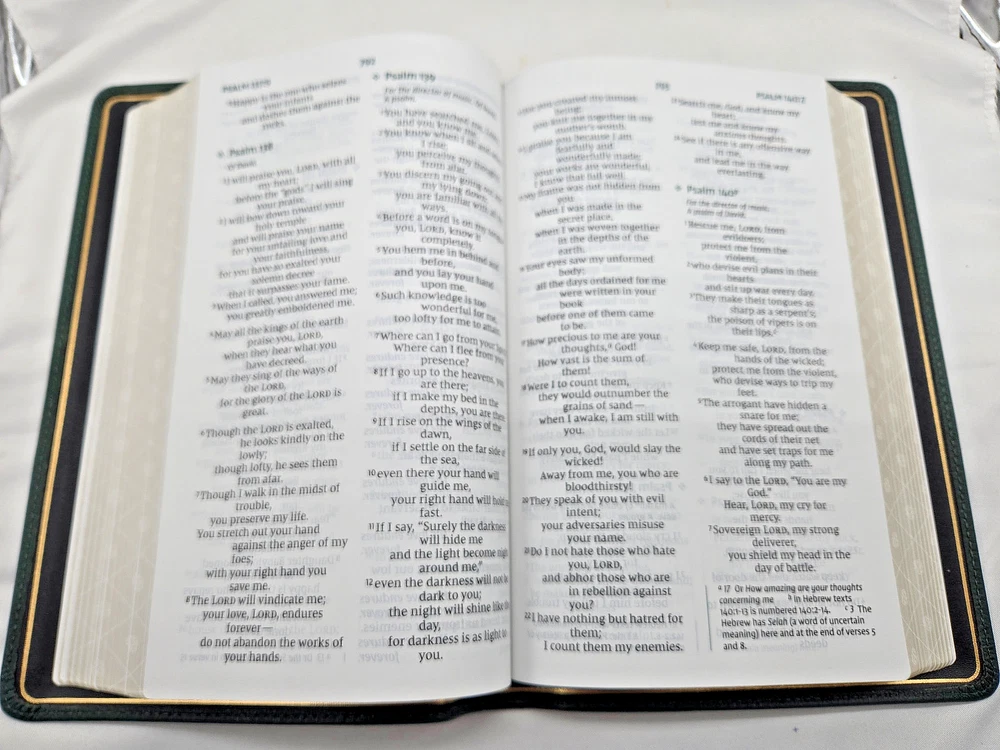 Psalm 138
Of David.
1I will praise you, LORD, with all
my heart;
before the "gods" I will sing
your praise.
2I will bow down toward your
holy temple
and will praise your name
for your unfailing love and
your faithfulness,
for you have so exalted your
solemn decree
that it surpasses your fame.
3When I called, you answered me;
you greatly emboldened me.
4May all the kings of the earth
praise you, LORD,
when they hear what you
have decreed.
5May they sing of the ways of
the LORD,
for the glory of the LORD is
great.
6Though the LORD is exalted,
he looks kindly on the
lowly;
though lofty, he sees them
from afar.
7Though I walk in the midst of
trouble,
you preserve my life.
You stretch out your hand
against the anger of my
foes;
with your right hand you
save me.
8The LORD will vindicate me;
your love, LORD, endures
forever—
do not abandon the works of
your hands.
Psalm 139
For the director of music.
a psalm.
1You have searched me,
and you know me.
2You know when I sit and
I rise;
you perceive my thoughts
from afar.
3You discern my going out
my lying down;
you are familiar with all
ways.
4Before a word is on my tongue
you, LORD, know it
completely.
5You hem me in behind and
before,
and you lay your hand
upon me.
6Such knowledge is too
wonderful for me,
too lofty for me to attain.
7Where can I go from your
Where can I flee from
presence?
8If I go up to the heavens, you
are there;
if I make my bed in the
depths, you are there
9If I rise on the wings of the
dawn,
if I settle on the far side of
the sea,
10even there your hand will
guide me,
your right hand will hold
fast.
11If I say, "Surely the darkness
will hide me
and the light become night
around me,"
12even the darkness will not be
dark to you;
the night will shine like the
day,
for darkness is as light to
you.
793
you created my inmost
being;
you knit me together in my
mother's womb.
I praise you because I am
fearfully and
wonderfully made;
your works are wonderful,
I know that full well.
My frame was not hidden from
you
when I was made in the
secret place,
when I was woven together
in the depths of the
earth.
Your eyes saw my unformed
body;
all the days ordained for me
were written in your
book
before one of them came
to be.
How precious to me are your
thoughts,a God!
How vast is the sum of
them!
18Were I to count them,
they would outnumber the
grains of sand—
when I awake, I am still with
you.
19If only you, God, would slay the
wicked!
Away from me, you who are
bloodthirsty!
20They speak of you with evil
intent;
your adversaries misuse
your name.
21Do I not hate those who hate
you, LORD,
and abhor those who are
in rebellion against
you?
22I have nothing but hatred for
them;
I count them my enemies.
23Search me, God, and know my
heart;
test me and know my
anxious thoughts.
24See if there is any offensive way
in me,
and lead me in the way
everlasting.
Psalm 140b
For the director of music.
A psalm of David.
1Rescue me, LORD, from
evildoers;
protect me from the
violent,
2who devise evil plans in their
hearts
and stir up war every day.
3They make their tongues as
sharp as a serpent's;
the poison of vipers is on
their lips.c
4Keep me safe, LORD, from the
hands of the wicked;
protect me from the violent,
who devise ways to trip my
feet.
5The arrogant have hidden a
snare for me;
they have spread out the
cords of their net
and have set traps for me
along my path.
6I say to the LORD, "You are my
God."
Hear, LORD, my cry for
mercy.
7Sovereign LORD, my strong
deliverer,
you shield my head in the
day of battle.
a 17 Or How amazing are your thoughts
concerning me b In Hebrew texts
140:1-13 is numbered 140:2-14. c 3 The
Hebrew has Selah (a word of uncertain
meaning) here and at the end of verses 5
and 8.